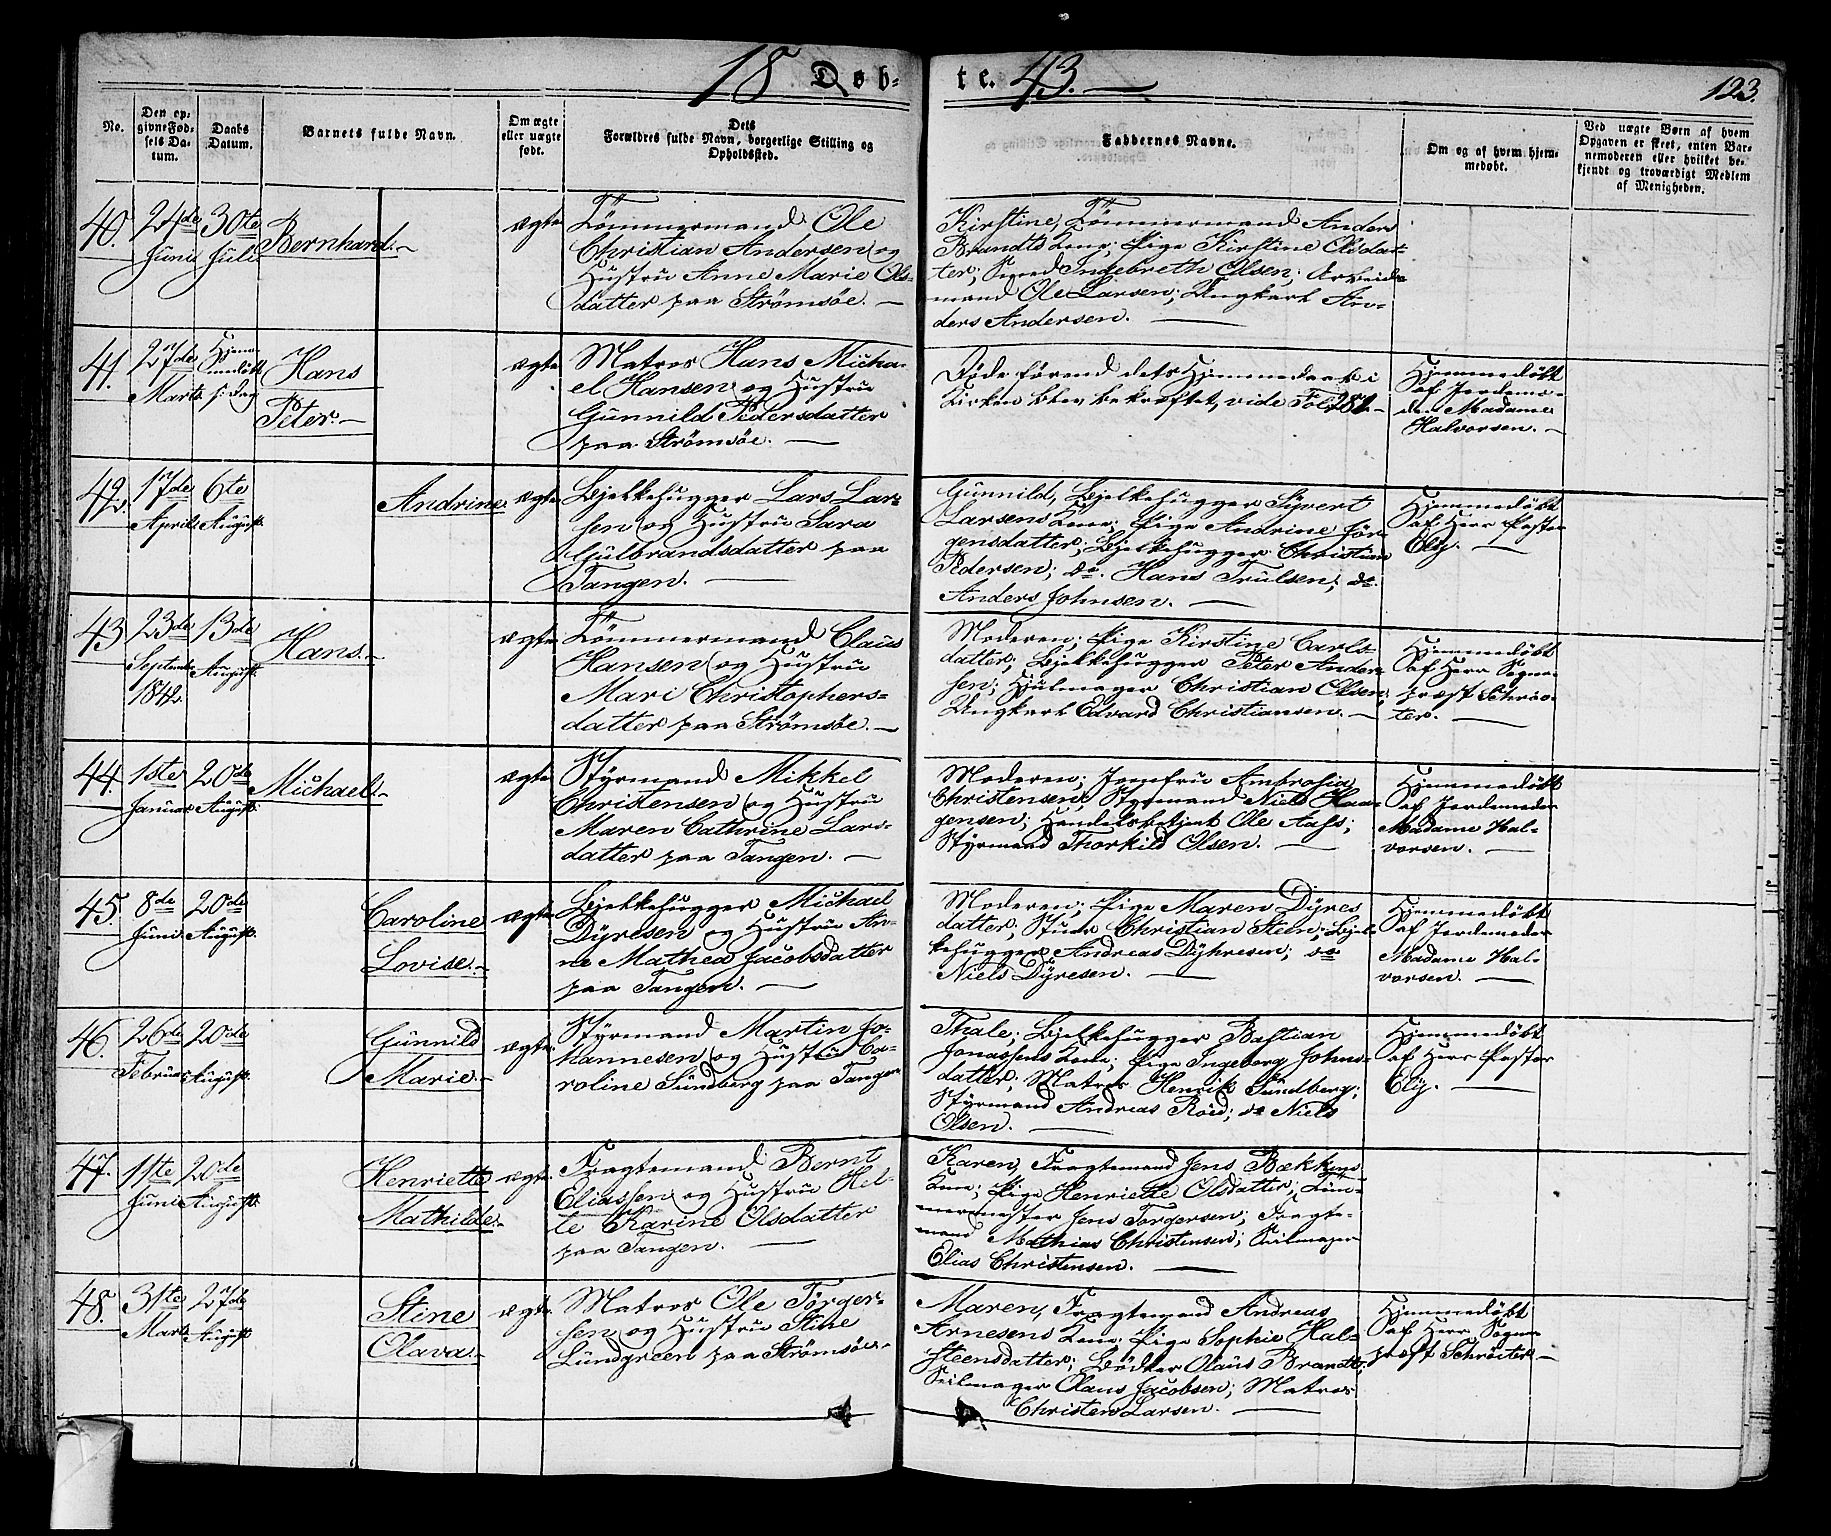 18 Døb-
te. 43.
123.
No.
Den op-
givne Fød-
sels Da-
tum.
Daabs
Datum.
Barnets fulde Navn.
Om ægte
eller uægte
født.
Dets
Forældres fulde Navn, borgerlige Stilling og
Opholdssted.
Faddernes Navne.
Om og af hvem hjem-
medøbt.
Ved uægte Børn af hvem
Opgaven er skeet, enten Bar-
nemoderen eller hvilket be-
kjendt og troværdigt Medlem
af Menigheden.
40.
24de
Juni
30te
Juli
Bernhard.
ægte
Tömmermand Ole
Christian Andersen og
Hustru Anne Marie Ols-
datter paa Strömsöe.
Kirstine, Tömmermand Anders
Brandts Kone; Pige Kirstine Olsdat-
ter; Svend Ingebreth Olsen; Arbeids-
mand Ole Larsen; Ungkarl An-
ders Andersen.
41.
27de
Marts
Hjem-
medöbt
s: Dag
Hans
Peter.
ægte
Matros Hans Micha-
el Hansen og Hustru
Gunnild Pedersdatter
paa Strömsöe.
Döde förend dets Hjemmedaab i
Kirken blev bekræftet, vide Fol: 281
Hjemmedöbt
af Jordemo-
der Madame
Halvorsen.
42.
17de
April
6te
August.
Andrine
ægte
Bjelkehugger Lars Lar-
sen og Hustru Sara
Gulbrandsdatter paa
Tangen.
Gunnild, Bjelkehugger Syvert
Larsens Kone; Pige Andrine Jör-
gensdatter; Bjelkehugger Christian
Pedersen; do. Hans Trulsen; do
Anders Johnsen.
Hjemmedöbt
af Herr Pastor
Ely.
43
23de
September
1842.
13de
August.
Hans.
ægte
Tömmermand Claus
Hansen og Hustru
Mari Christophers-
datter paa Strömsöe.
Moderen; Pige Kirstine Carls-
datter; Bjelkehugger Peter Ander-
sen; Hjulmager Christian Olsen;
Ungkarl Edvard Christiansen.
Hjemmedöbt
af Herr Sogne-
præst Schrøe-
ter.
44.
1ste
Januar
20de
August.
Michael.
ægte
Styrmand Mikkel
Christensen og Hustru
Maren Cathrine Lars-
datter paa Tangen.
Moderen; Jomfru Ambrosia
Christensen; Styrmand Niels Haa-
gensen; Handelsbetjent Ole Aass;
Styrmand Thorkild Olsen.
Hjemmedöbt
af Jordemoder
Madame Hal-
vorsen.
45.
8de
Juni
20de
August.
Caroline
Lovise.
ægte
Bjelkehugger Michael
Dyresen og Hustru An-
ne Mathea Jacobsdatter
paa Tangen.
Moderen; Pige Maren Dyres
datter; Stuer Christian Steen; Bjel-
kehugger Andreas Dyhresen; do
Niels Dyresen.
Hjemmedöbt
af Jordemoder
Madame Hal-
vorsen.
46.
26de
Februar
20de
August.
Gunnild
Marie.
ægte
Styrmand Martin Jo-
hannesen og Hustru Ca-
roline Sundberg paa Tangen
Thale; Bjelkehugger Bastian
Jonassens Kone; Pige Ingeborg Johns-
datter; Matros Henrik Sundberg;
Styrmand Andreas Röed; do Niels
Olsen.
Hjemmedöbt
af Herr Pastor
Ely.
47.
11te
Juni
20de
August.
Henriette
Mathilde.
ægte
Fragtemand Bernt
Eliassen og Hustru Hel-
le Karine Olsdatter
paa Tangen.
Karen, Fragtemand Jens Bækkens
Kone; Pige Henriette Olsdatter; Töm-
mermester Jens Torgersen; Fragte-
mand Mathias Christensen; Seilmager
Elias Christensen.
48.
31te
Marts
27de
August.
Stine
Olava.
ægte
Matros Ole Törger-
sen og Hustru Stine
Lundgreen paa Strömsöe.
Maren, Fragtemand Andreas
Arnesens Kone; Pige Sophie Hal-
steensdatter; Bödker Olaus Brandt;
Seilmager Olaus Jacobsen; Matros
Christen Larsen.
Hjemmedöbt
af Herr Sogne-
præst Schröeter.